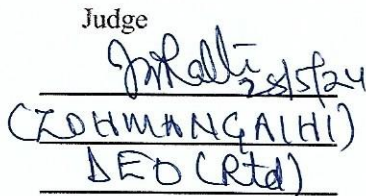 Judge
28/5/24
(ZOHMANGAIHI)
DEO (Rtd)